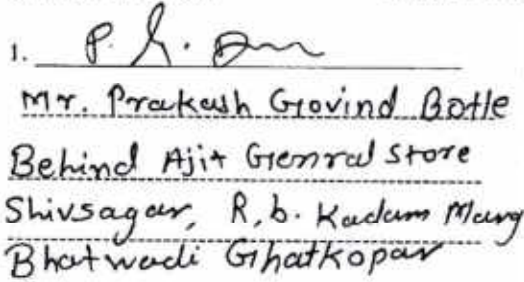 1. P. G.
Mr. Prakash Govind Botle
Behind Ajit Genral Store
Shivsagar, R.b. Kadam Marg
Bhatwadi Ghatkopar